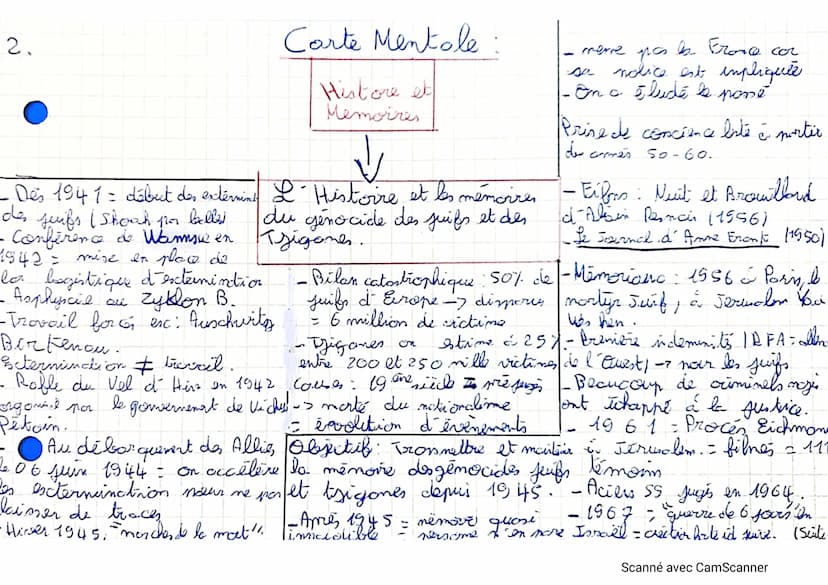 2.
Carte Mentale :
Histoire et
Memoires
L'Histoire et les mémoires
du génocide des juifs et des
Tsiganes.
- Dès 1941 = début des extermin
des juifs (Shoah par balles)
- Conférence de Wannsee en
1942 = mise en place de
la logistique d'extermination
- Asphyxie au Zyklon B.
- Travail forcé ex : Auschwitz
Birkenau.
Extermination ≠ travail.
- Rafle du Vel d'Hiv en 1942
organisé par le gouvernement de Vichy
Pétain.
- Au débarquement des Alliés
le 06 juin 1944 = on accélère
les extermination pour ne pas
laisser de traces
Hiver 1945. "marches de la mort".
- Bilan catastrophique : 50% de
juifs d'Europe -> disparus
= 6 million de victime
- Tsiganes on estime à 25%
entre 200 et 250 mille victimes
causes : 19ème siècle = préjugés
-> monté du nationalime
= évolution d'évènements
Objectif : Transmettre et
la mémoire des génocides juifs
et tsiganes depuis 1945.
- Après 1945 = mémoire quasi
= personne n'en parle
- même pas la France car
sa police est impliquée
- On a éludé le passé
Prise de concience à partir
des années 50-60.
- Films : Nuit et Brouillard
d'Alain Resnais (1956)
- Le Journal d'Anne Frank (1950)
- Mémoriaux : 1956 à Paris, le
martyr Juif, à Jérusalem Yad
Vashem.
- Première indemnité (RFA = allem
de l'Ouest) -> pour les juifs
- Beaucoup de criminels nazi
ont échappé à la justice.
- 1961 = Procès Eichmann
à Jérusalem. = filmés = 111
témoin
- Aciens SS jugés en 1964.
- 1967 = "guerre de 6 jours" en
Israël = (Suite
Scanné avec CamScanner